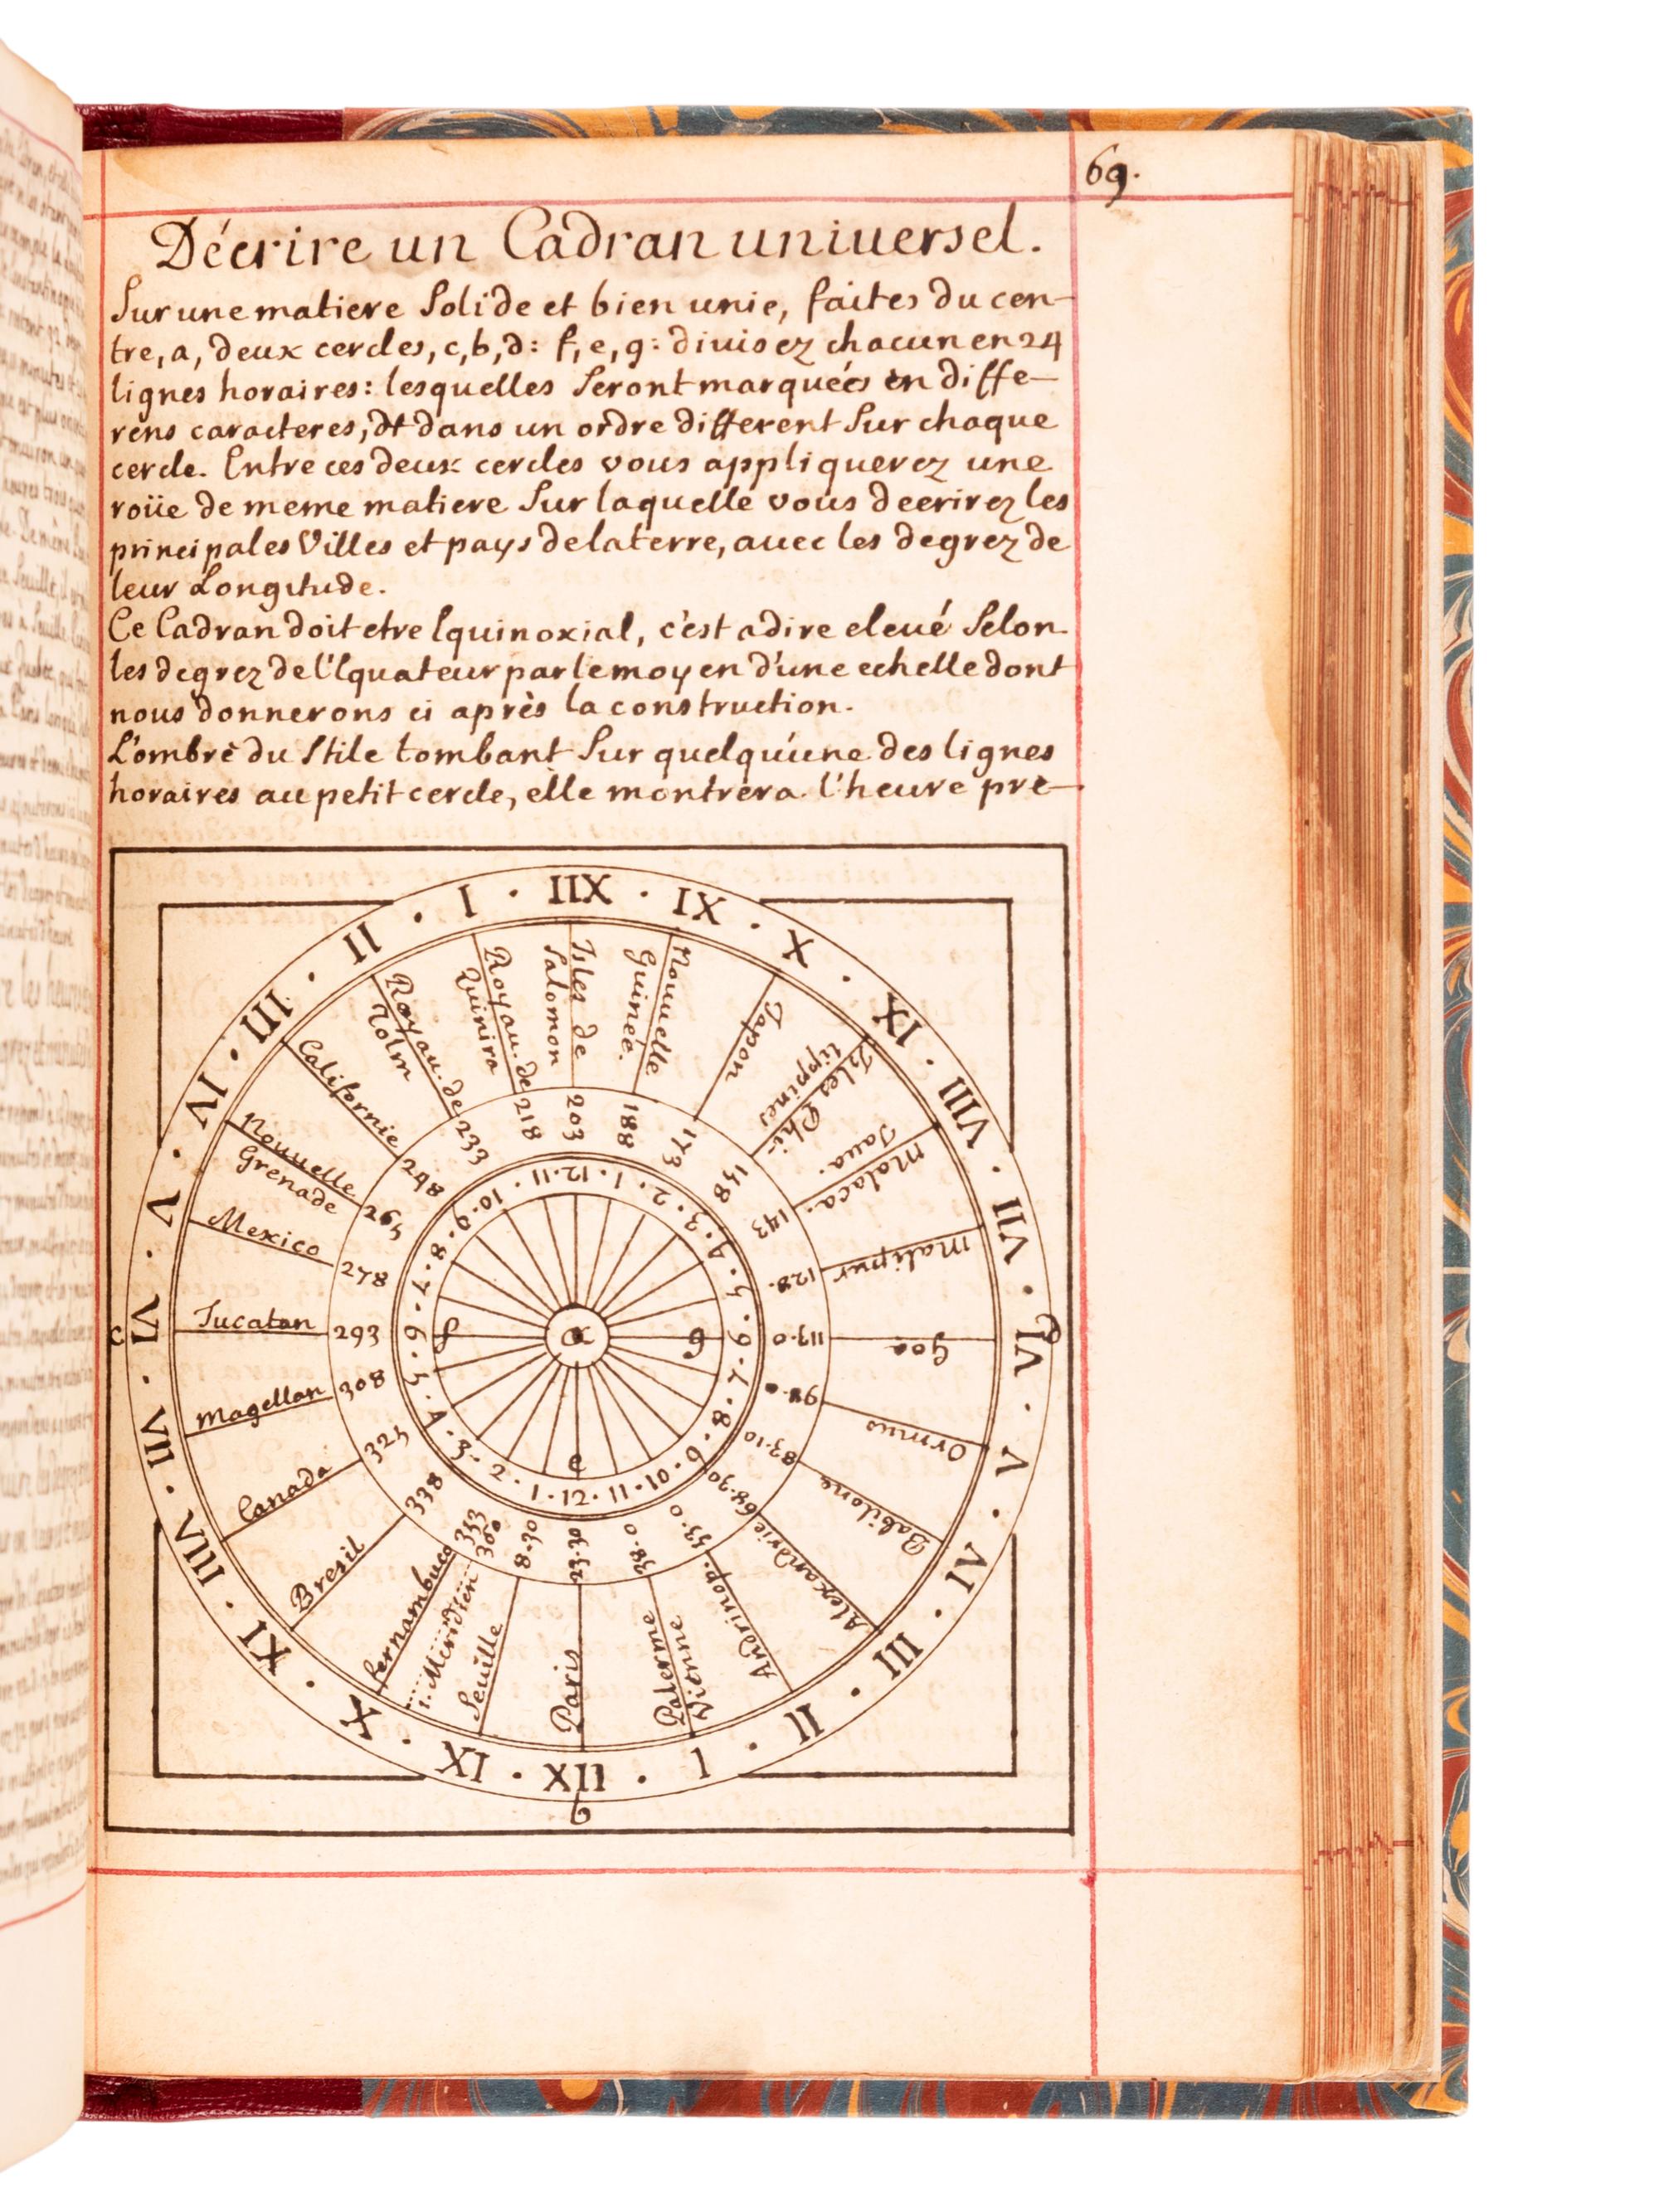 69.
Décrire un Cadran uniuersel.
Sur une matiere Solide et bien unie, faites du cen-
tre, a, deux cercles, c, b, d: f, e, g: diuisez chacun en 24
lignes horaires: lesquelles Seront marquées en diffe-
rens caracteres, et dans un ordre different Sur chaque
cercle. Entre ces deux cercles vous appliquerez une
roüe de meme matiere Sur laquelle vous decrirez les
principales Villes et pays de la terre, auec les degrez de
leur Longitude.
Ce Cadran doit etre Equinoxial, c'est a dire eleué Selon
les degrez de l'Equateur par le moyen d'une echelle dont
nous donnerons ci après la construction.
L'ombre du Stile tombant Sur quelqu'une des lignes
horaires au petit cercle, elle montrera l'heure pre-
XII · XI · X · IX · VIII · VII · VI · V · IV · III · II · I · XII · XI · X · IX · VIII · VII · VI · V · IV · III · II · I
Isles de
Salomon
203
Nouuelle
Guinée.
188
Japon
173
Isles Phi-
lippines
158
Malaca.
Jaua.
143
Malipur
128.
Goa
113.0
Ormus
98.0
Babilone
83.10
Alexandrie
68.30
Andrinop.
53.0
Palerme
Vienne
38.0
Paris
23.30
Seuille
8.30
1. Meridien
360
Fernambuco
353
Bresil
338
Canada
325
Magellan
308
Jucatan
293
Mexico
278
Nouuelle
Grenade
265
Californie
248
Royau. de
Tolm
233
Royau. de
Quinira
218
12 · 1 · 2 · 3 · 4 · 5 · 6 · 7 · 8 · 9 · 10 · 11 · 12 · 1 · 2 · 3 · 4 · 5 · 6 · 7 · 8 · 9 · 10 · 11
c
f
a
g
d
e
b